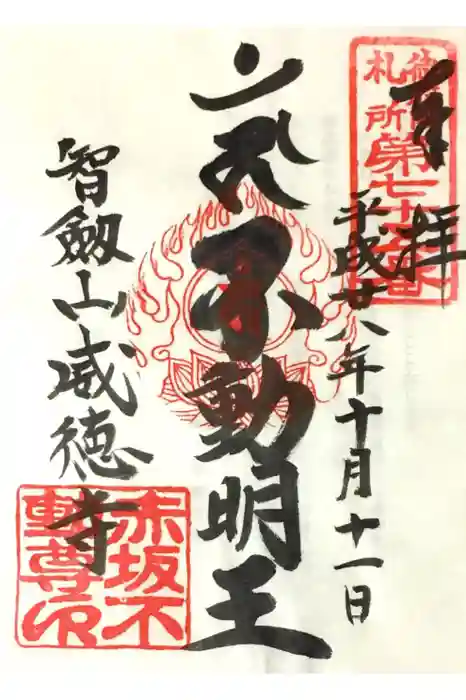 奉拝
札所
第七十五番
平成廿八年十月十一日
不動明王
智剱山威徳寺
赤坂不
動尊印